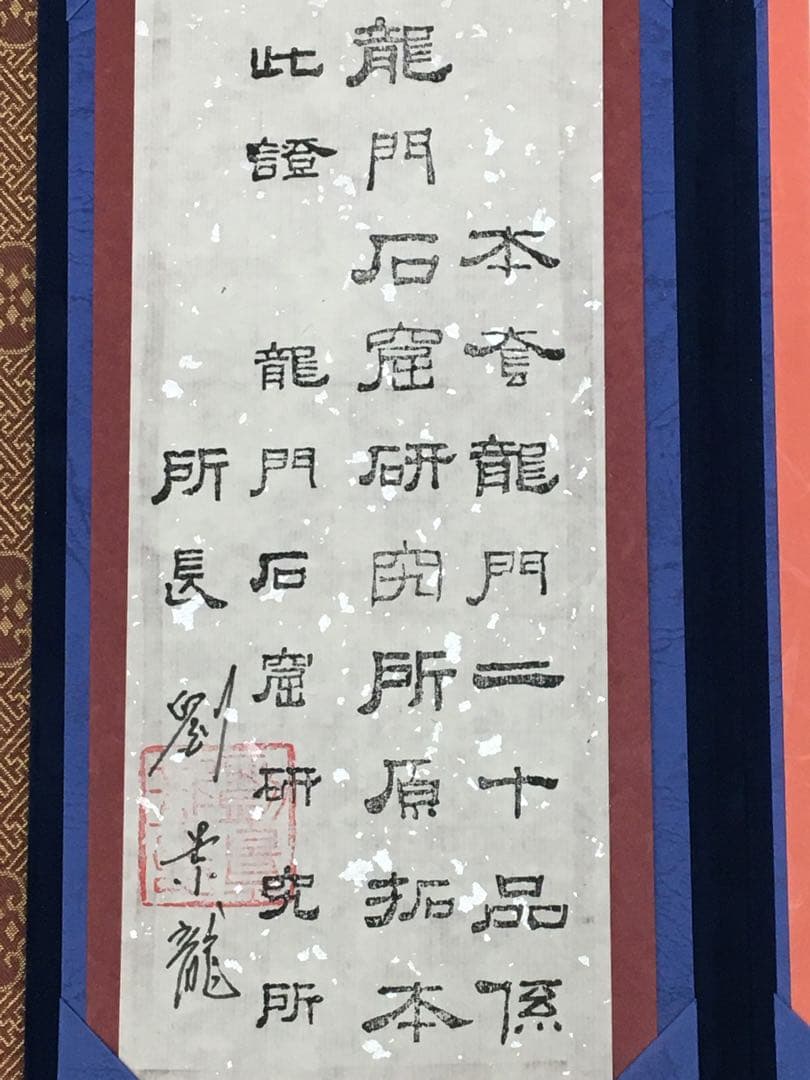 本套龍門二十品係
龍門石窟研究所原拓本
此證
龍門石窟研究所
所長 劉景龍